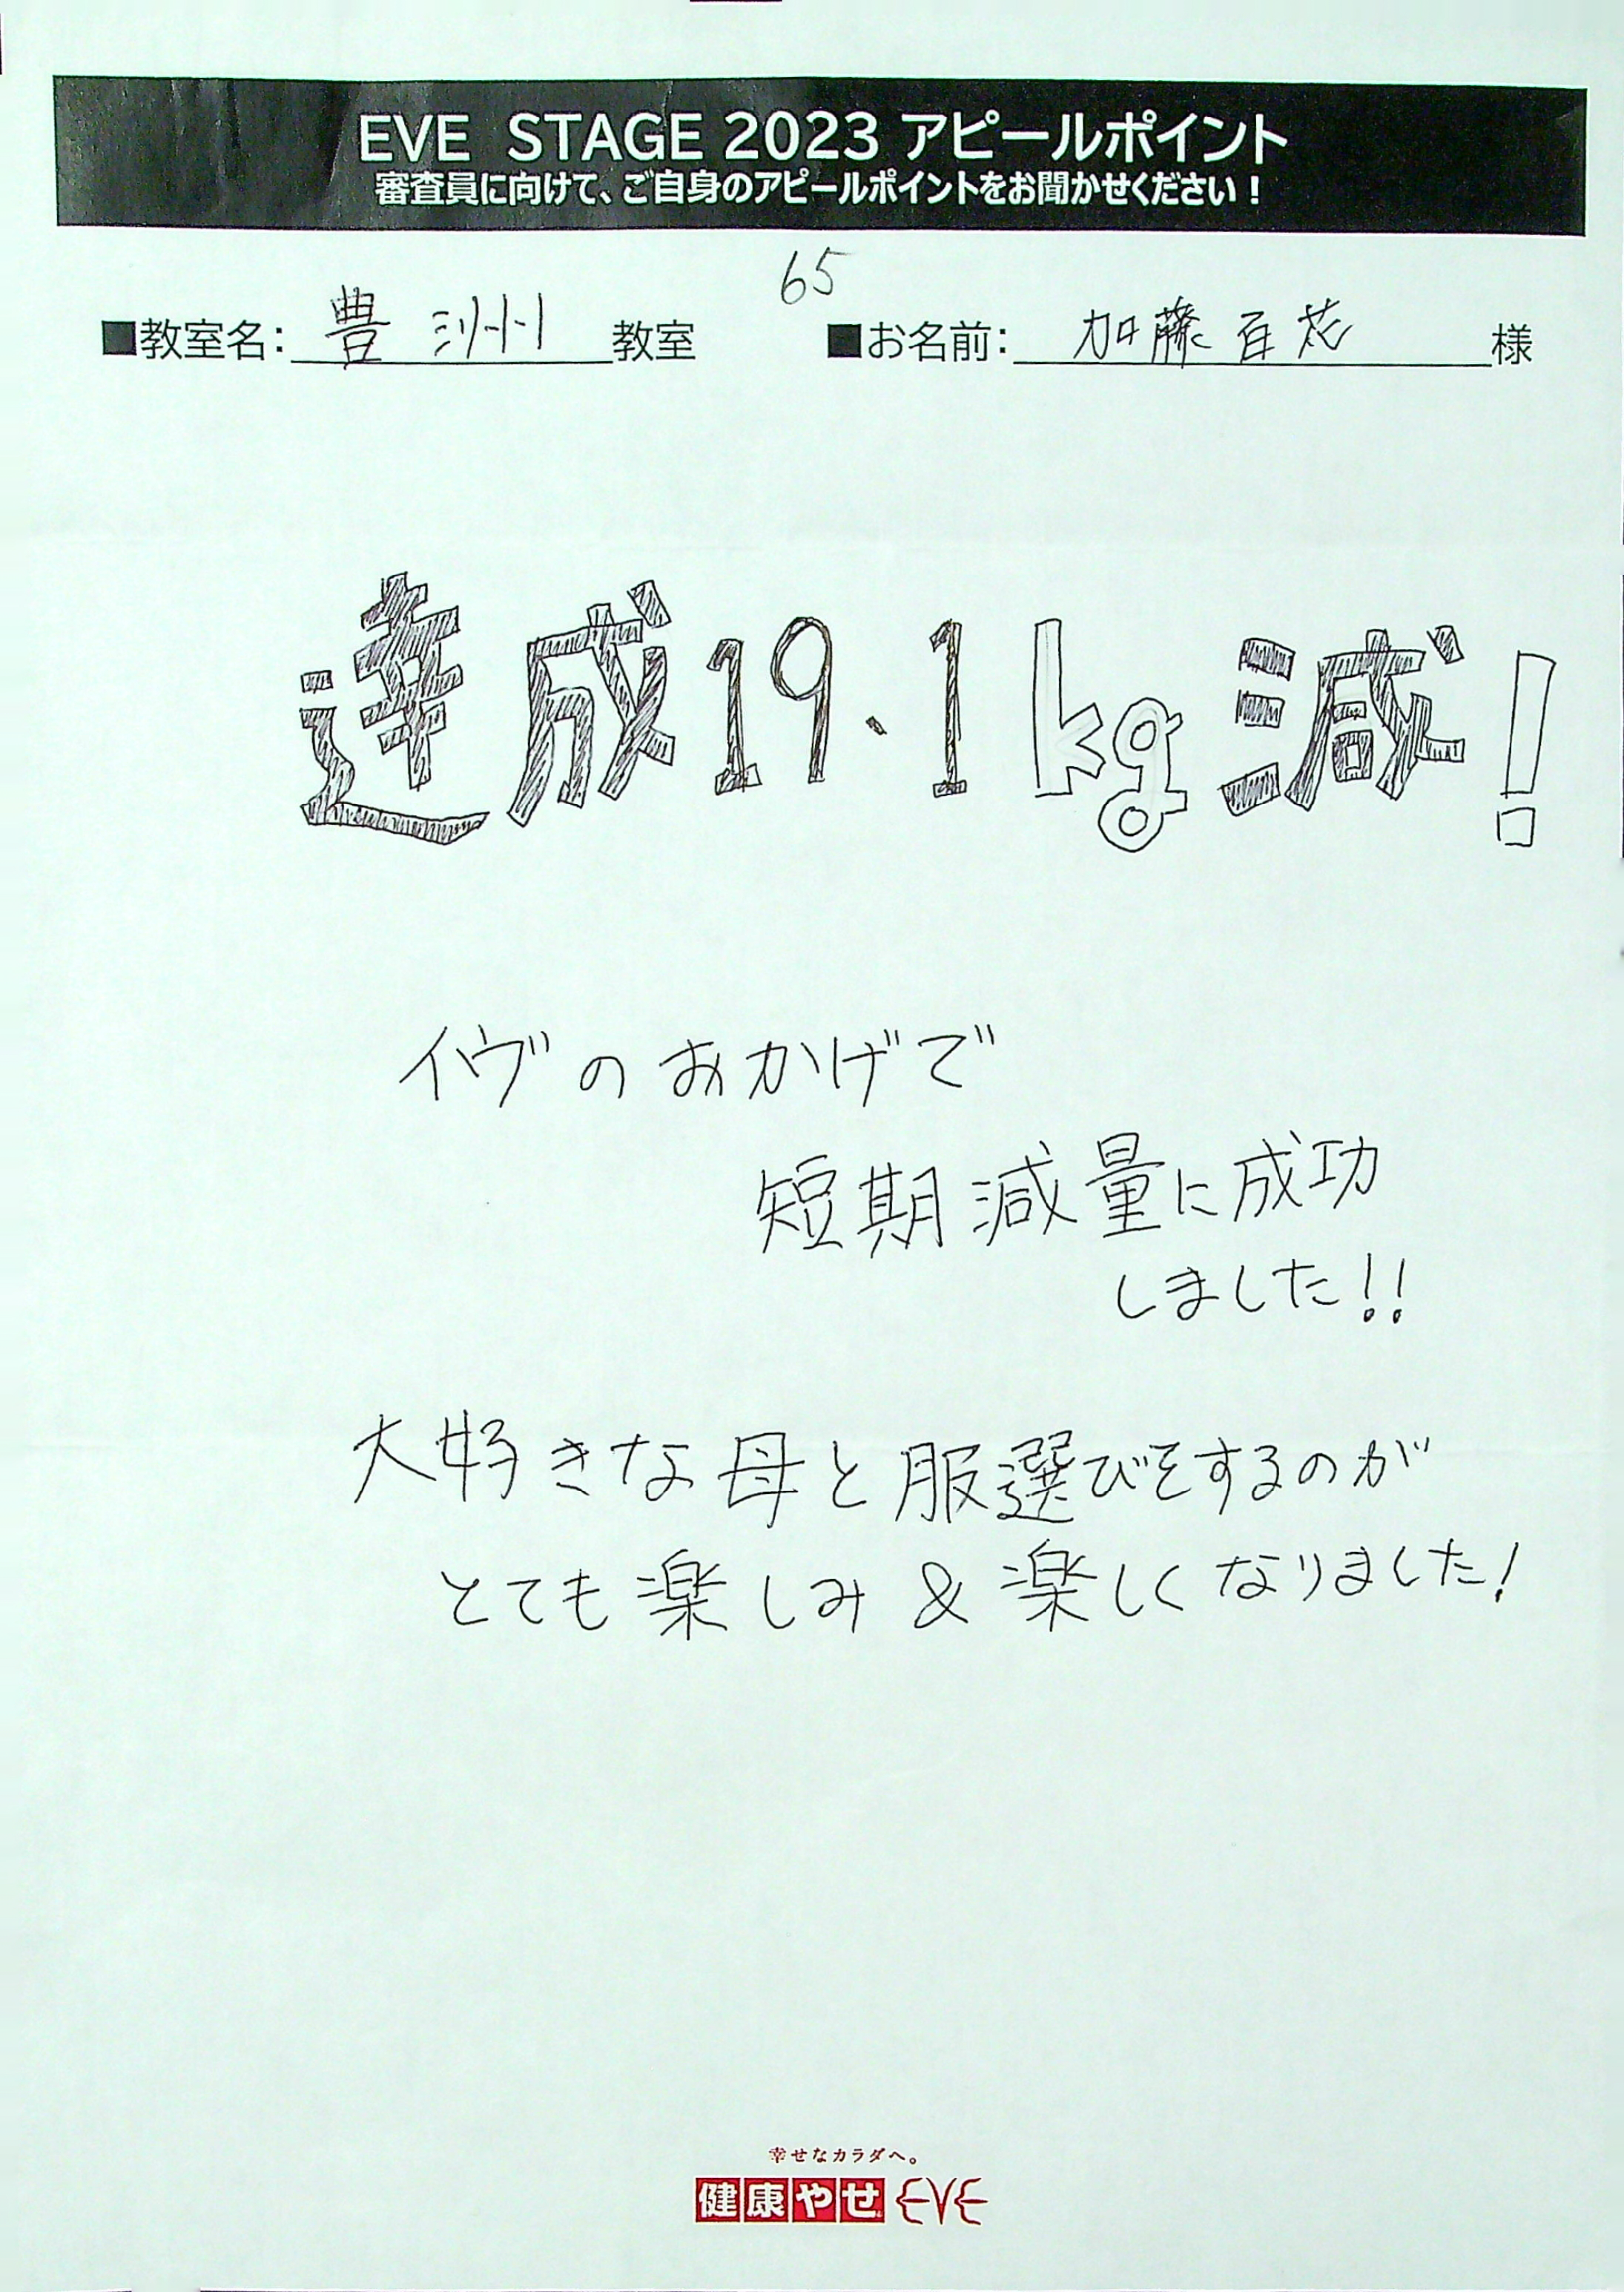 EVE STAGE 2023 アピールポイント
審査員に向けて、ご自身のアピールポイントをお聞かせください！
65
■教室名：豊洲教室 ■お名前：加藤百花様
達成19.1kg減！
イヴのおかげで
短期減量に成功
しました!!
大好きな母と服選びをするのが
とても楽しみ&楽しくなりました！
幸せなカラダへ。
健康やせ EVE